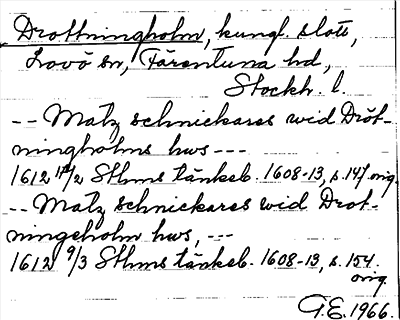 Drottningholm, kungl. slott,
Lovö sn, Färentuna hd,
Stockh. l.
-- Matz schnickares wid Dröt-
ningholms hws ---
1612 12/2 Sthms tänkeb. 1608-13, s. 147 orig.
-- Matz schnickares wid Drot-
ningeholm hws, ---
1612 9/3 Sthms tänkeb. 1608-13, s. 154.
orig.
G.E. 1966.